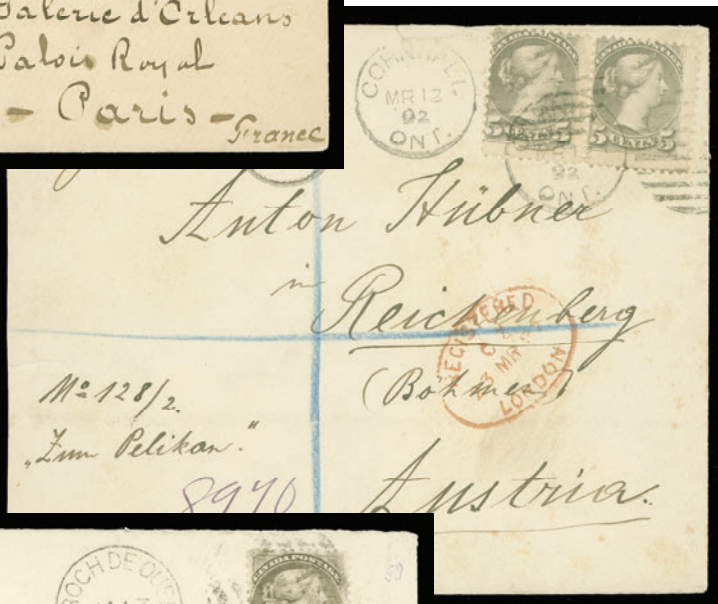 Galerie d'Orleans
Palais Royal
- Paris -
France
CORNWALL
MR 12
92
ONT.
CANADA POSTAGE
5 CENTS 5
5 CENTS 5
92
ONT.
Anton Hübner
in
Reichenberg
REGISTERED
MR
LONDON
(Böhmen)
No 128/2.
„Zum Pelikan."
8970
Austria.
ROCH DE QUE
CANADA POSTAGE